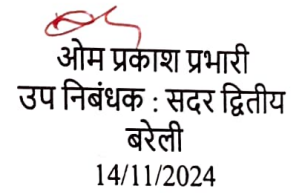 ओम प्रकाश प्रभारी
उप निबंधक : सदर द्वितीय
बरेली
14/11/2024